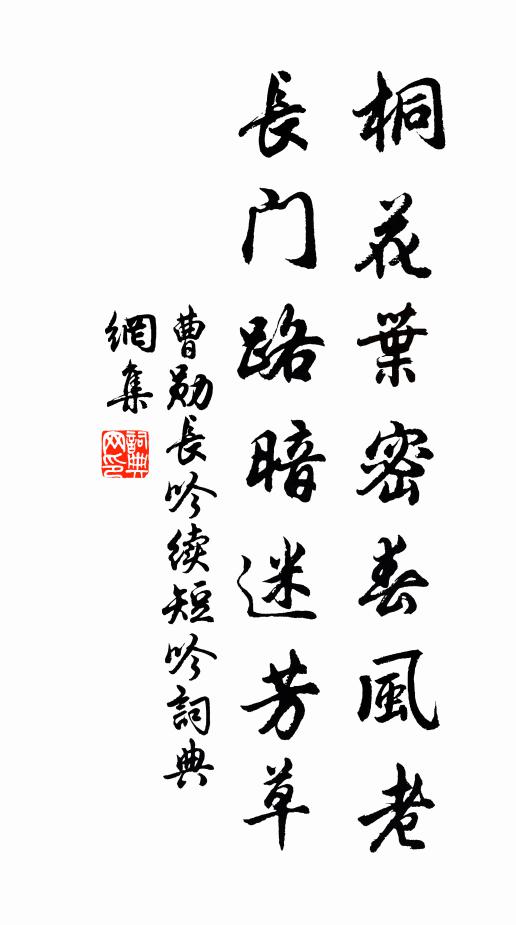 桐花葉密春風老
長门路暗迷芳草
曹勛長吟續短吟詞典
網集
詞典
网印